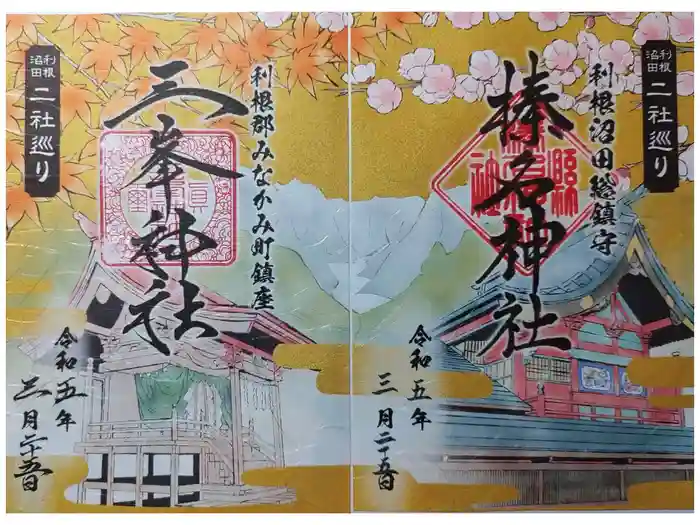 利根沼田
二社巡り
榛名神社
利根沼田総鎮守
令和五年
三月二十五日
利根沼田
二社巡り
三峯神社
利根郡みなかみ町鎮座
令和五年
三月二十五日